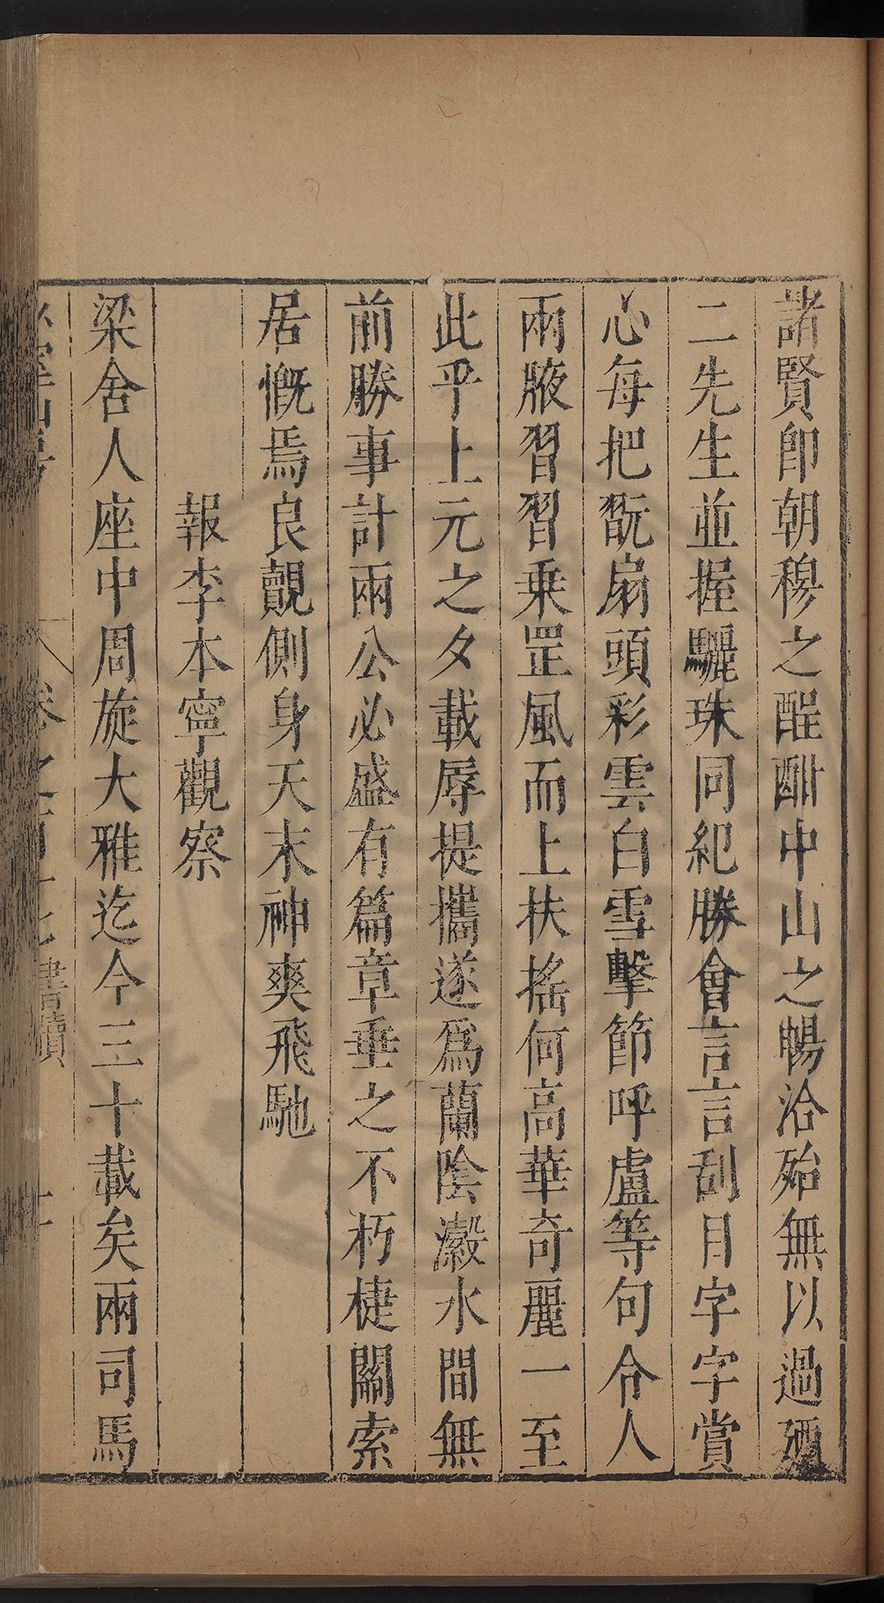 諸賢即朝穆之酲酣中山之暢洽殆無以過廼
二先生並握驪珠同紀勝會言言刮目字字賞
心每把翫扇頭彩雲白雪擊節呼盧等句令人
兩腋習習乗罡風而上扶搖何高華奇麗一至
此乎上元之夕載辱提攜遂為蘭陰瀫水間無
前勝事計兩公必盛有篇章垂之不朽揵關索
居慨焉良覿側身天末神爽飛馳
報李本寧觀察
梁舍人座中周旋大雅迄今三十載矣兩司馬
卷之
書牘